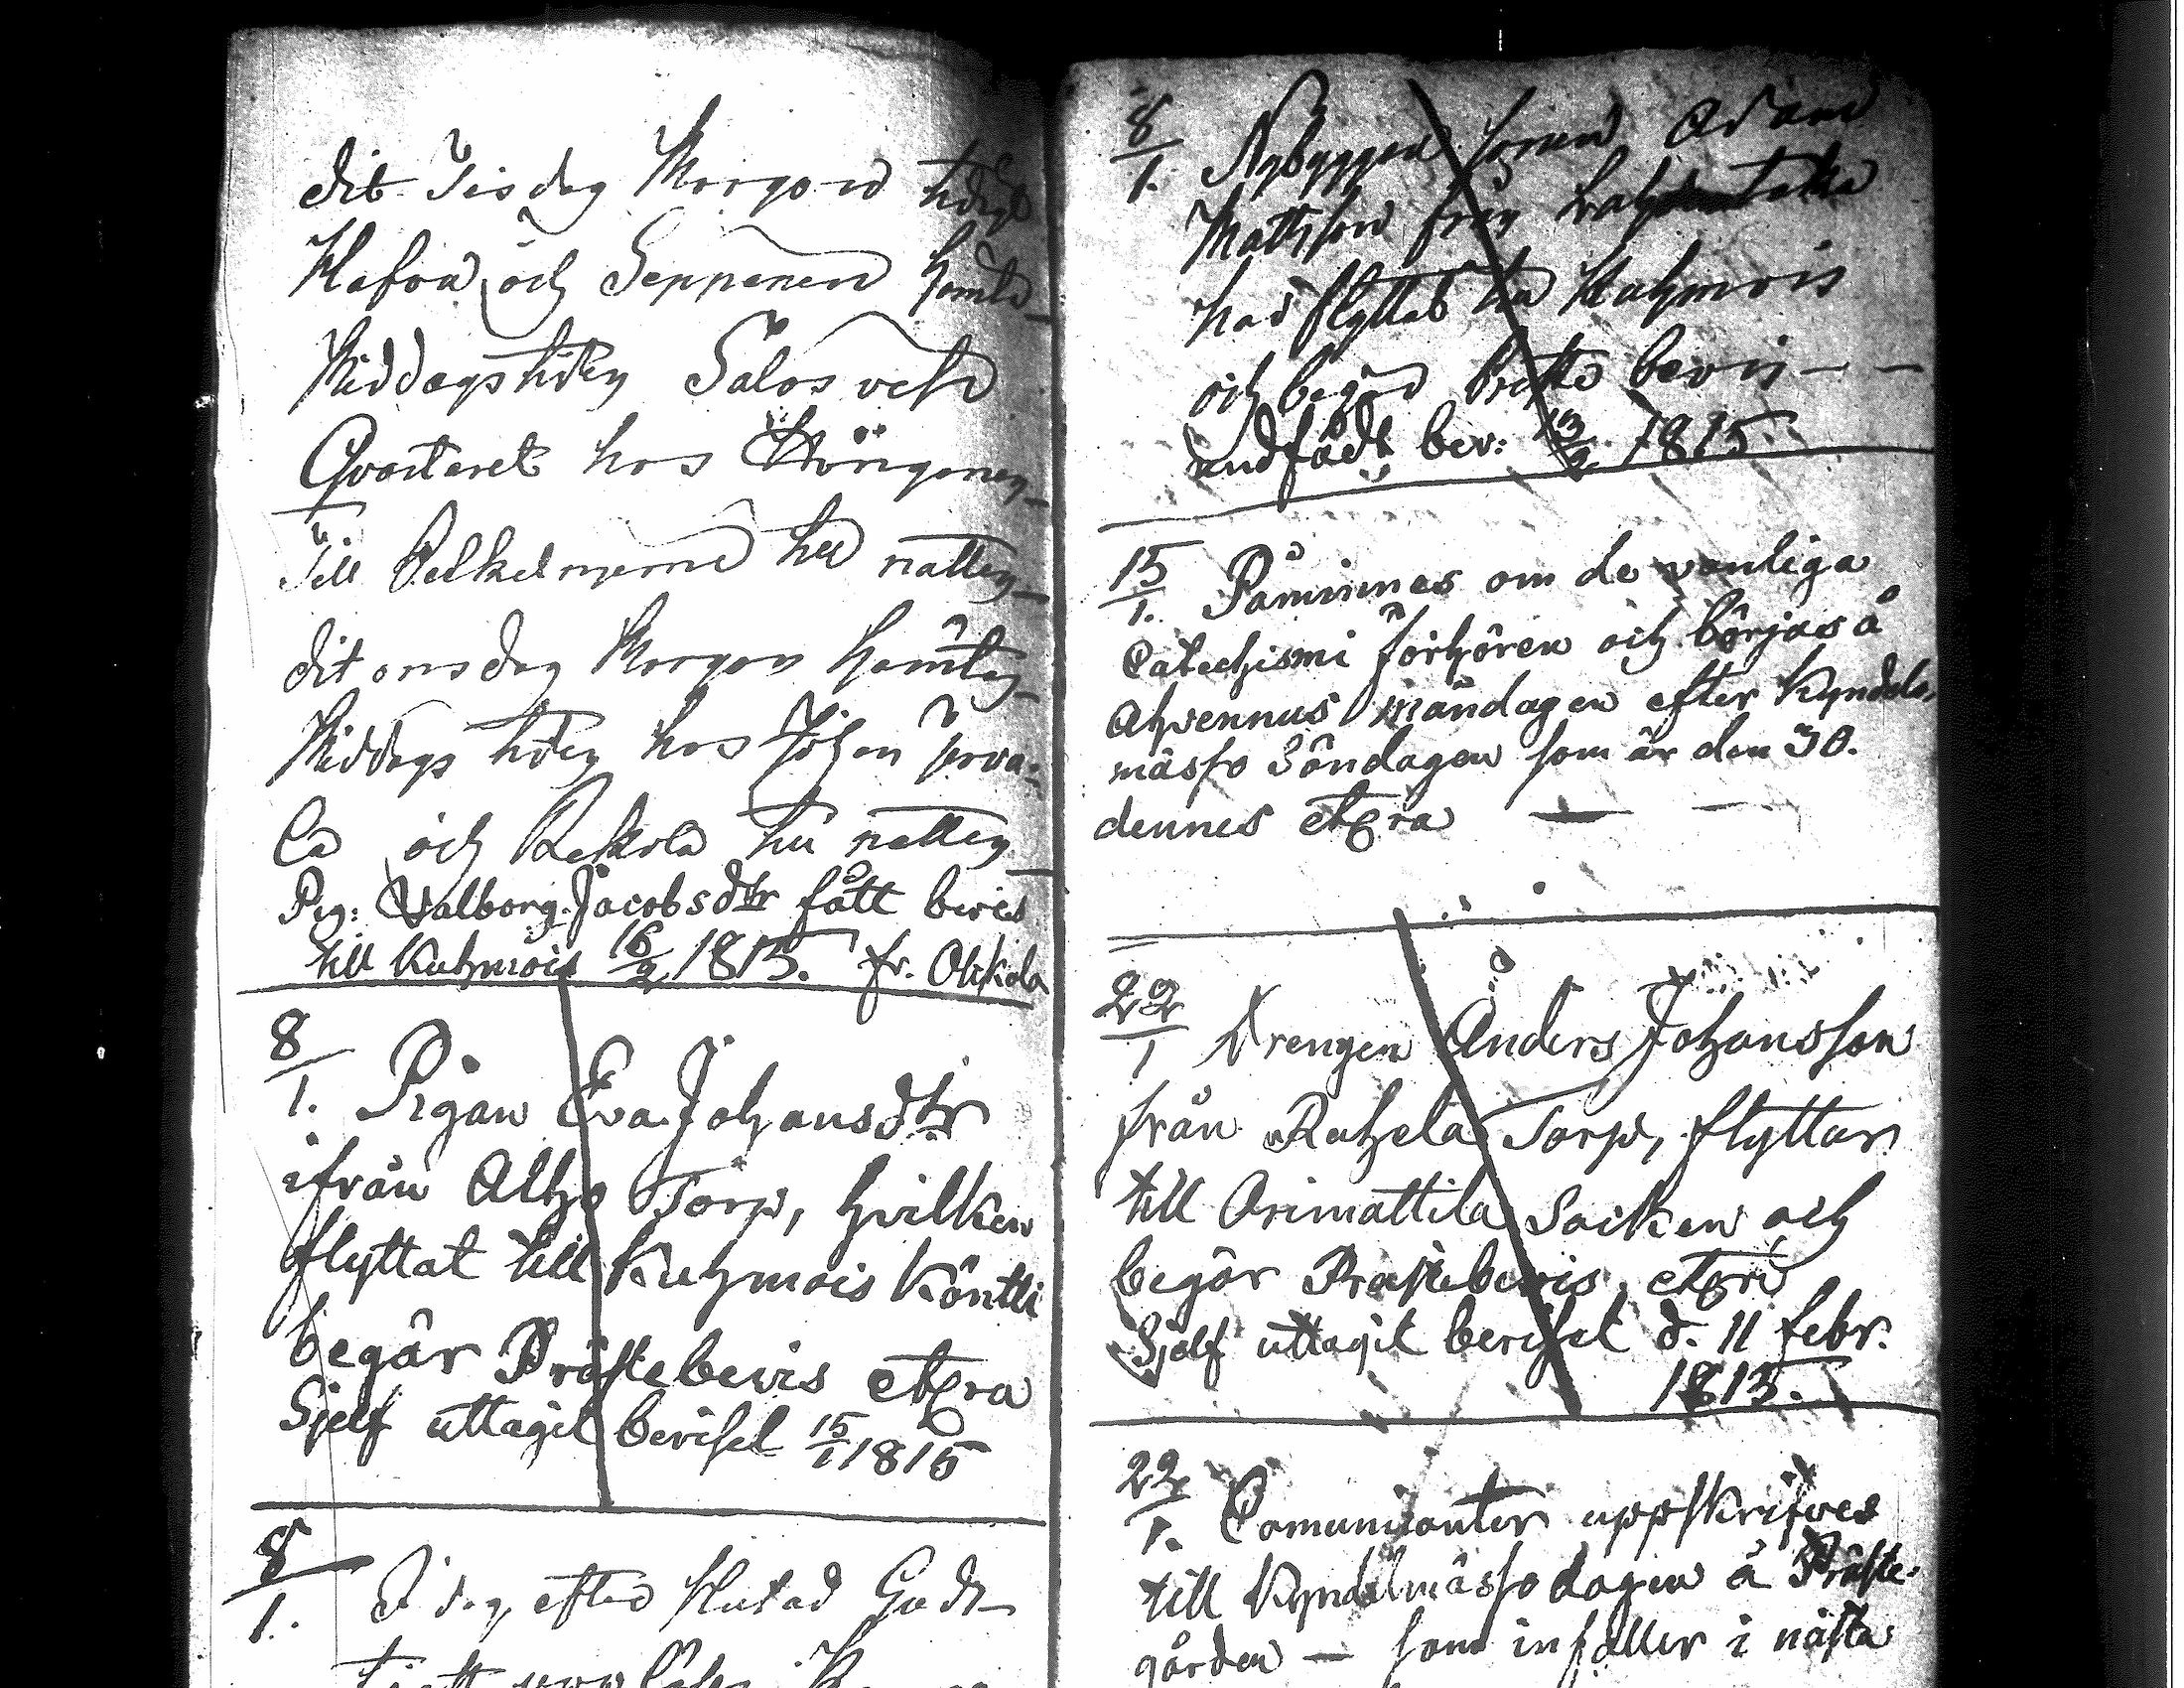 dit Tisdag Morgon
och Seppänen
Middagstiden Salos
Qvarteret hos
Till till natten
dit onsdag Morgon hämtas
Middags tiden hos
och till natten
Pig: Walborg Jacobsdtr fått bevis
till Kuhmois 16/2 1815. fr.
8/1. Pigan Eva Johansdtr
ifrån Alho Torp, hvilken
flyttat till Kuhmois Köntti
begär Prästebevis etcra
Sjelf uttagit beviset 15/1 1815
8/1. I dag, efter slutad Guds
8/1. Nybyggar sonen Adam
Mattsson från
har flyttat till Kuhmois
och begär Preste bevis — —
undfådt bev: 13/2 1815.
15/1. Påminnes om de vanliga
Catechismi förhören och börjas å
Ahvennus måndagen efter Kyndels-
mässo Söndagen som är den 30.
dennes etcra — —
22/1 Drengen Anders Johansson
från Rahela Torp, flyttar
till Orimattila Socken och
begär Prästebevis etcra
Sjelf uttagit beviset d. 11 febr.
1815.
22/1. Comunicanter uppskrifves
till Kyndelmässo dagen å Präste-
gården — som infaller i nästa